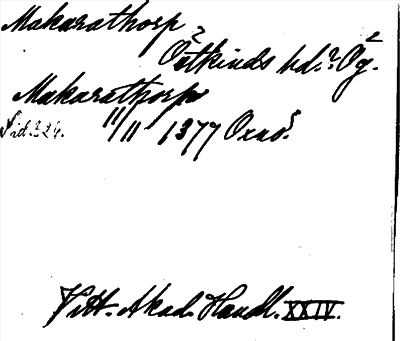 Makarathorp
Östkinds hd.? Ög.
Makarathorp
Sid. 326. 11/11 1377 Oxnö.
Vitt. Akad. Handl. XXIV.